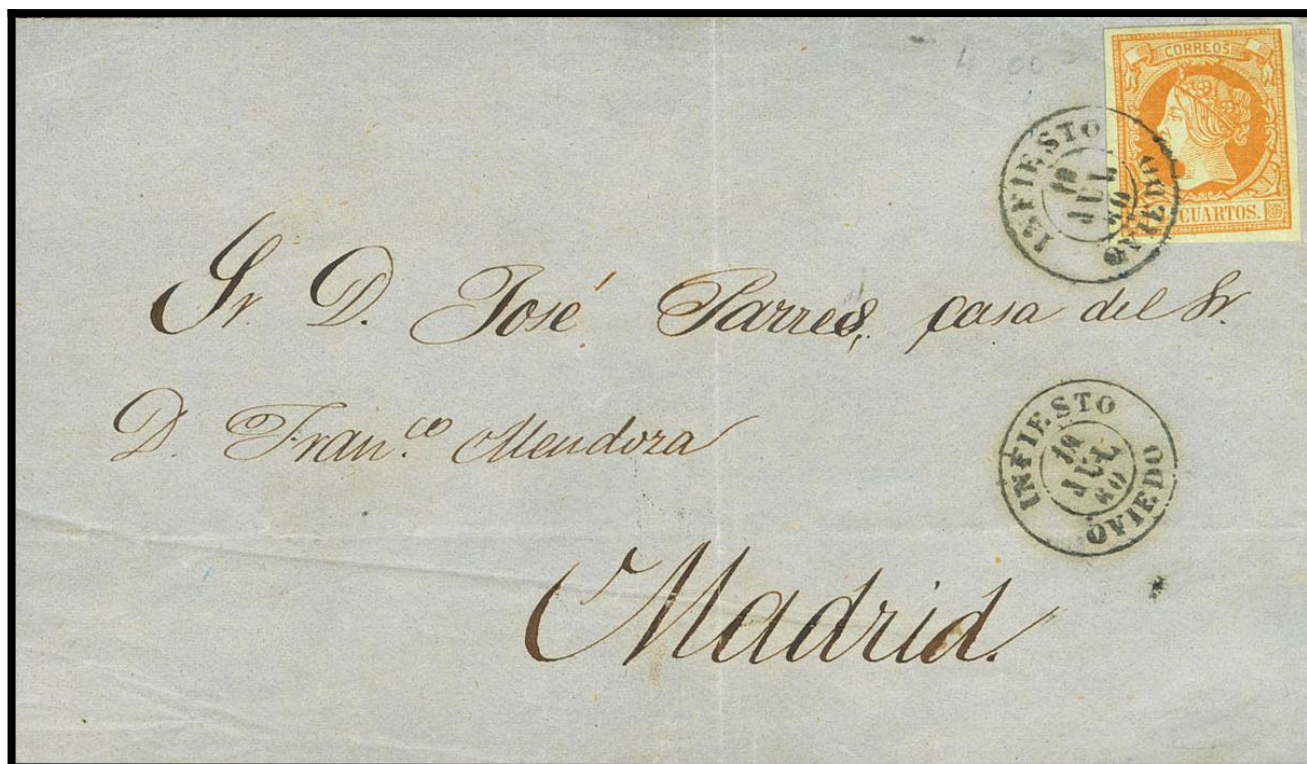 4 00
CORREOS
CUARTOS.
INFIESTO
JUL
60
OVIEDO
Sr. D. José Parres, casa del Sr.
D. Fran.co Mendoza
INFIESTO
JUL
60
OVIEDO
Madrid.